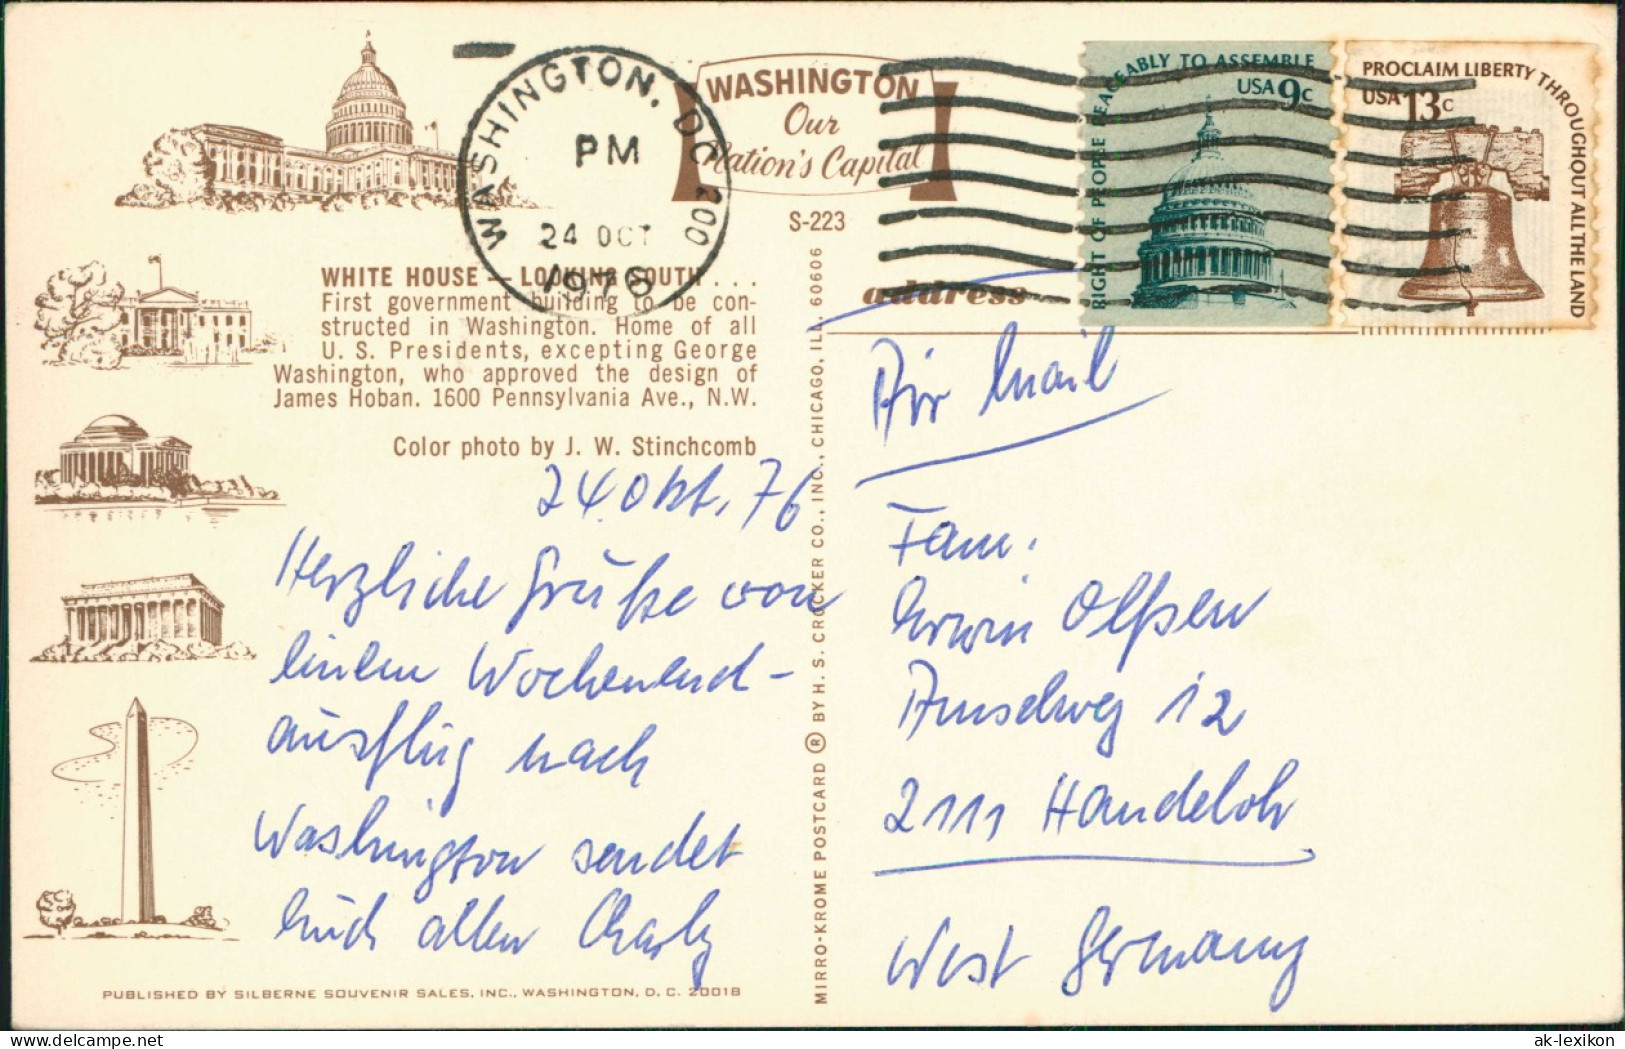 WASHINGTON, DC 200
PM
24 OCT
1976
WASHINGTON
Our
Nation's Capital
S-223
RIGHT OF PEOPLE PEACEABLY TO ASSEMBLE
USA 9c
PROCLAIM LIBERTY THROUGHOUT ALL THE LAND
USA 13c
WHITE HOUSE — LOOKING SOUTH . . .
First government building to be con-
structed in Washington. Home of all
U. S. Presidents, excepting George
Washington, who approved the design of
James Hoban. 1600 Pennsylvania Ave., N.W.
Color photo by J. W. Stinchcomb
24. Okt. 76
Herzliche Grüße von
einem Wochenend-
ausflug nach
Washington sendet
Euch allen Charly
PUBLISHED BY SILBERNE SOUVENIR SALES, INC., WASHINGTON, D. C. 20018
MIRRO-KROME POSTCARD ® BY H. S. CROCKER CO., INC., CHICAGO, ILL. 60606
address
Air Mail
Fam.
Erwin Olßen
Amselweg 12
2111 Handeloh
West Germany
ak-lexikon.de - delcampe.net